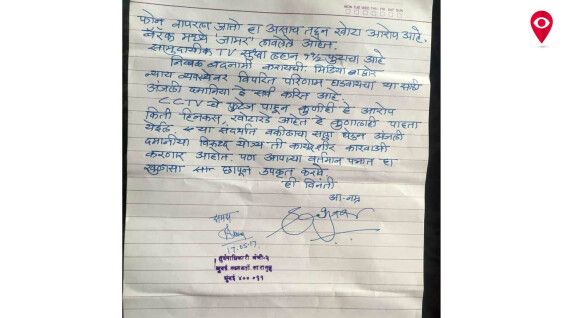 फोन वापरला जातो हा असाच तद्दन खोटा आरोप आहे.
बॅरेक मध्ये 'जामर' लावलेले आहेत.
सामुदायीक TV सुद्धा लहान १½ फुटाचा आहे
निव्वळ बदनामी करायची. मिडिया व
न्याय व्यवस्थेवर विपरित परिणाम घडवायचा या साठी
अंजली दमानिया हे सर्व करित आहे
CCTV चे फुटेज पाहून कुणीही हे आरोप
किती हिनकस, खोटारडे आहेत हे कुणालाही पाहता
येईल. या संदर्भात वकीलाचा सल्ला घेऊन अंजली
दमानीया विरुद्ध योग्य ती कायदेशीर कारवाई
करणार आहोत. पण आपल्या वर्तमान पत्रात हा
खुलासा छापून उपकृत करावे
ही विनंती
आ. नम्र
समक्ष
17.05.17
तुरुंगाधिकारी श्रेणी-२
मुंबई मध्यवर्ती कारागृह
मुंबई ४०० ०११